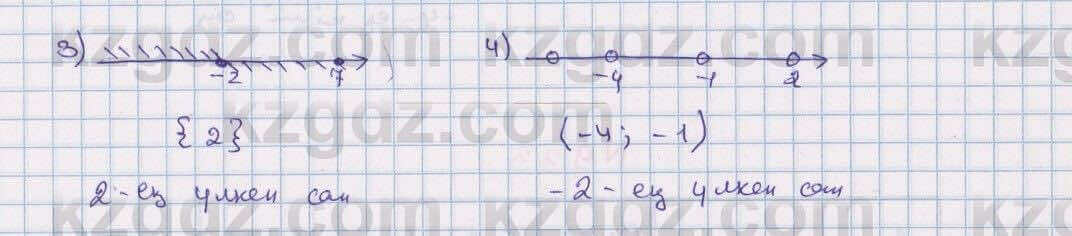 3) -2 7
{2}
2 - ең үлкен сан
4) -4 -1 2
(-4; -1)
-2 - ең үлкен сан
kzgdz.com